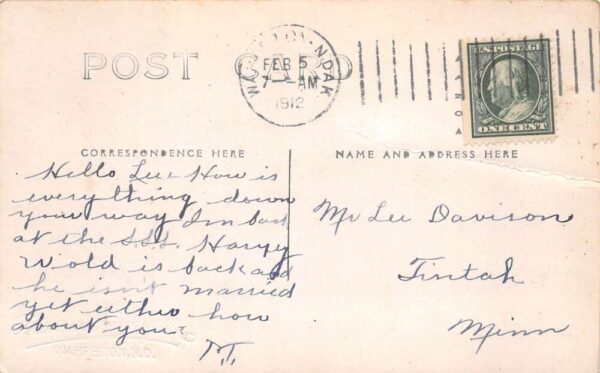 POST CARD
WAHPETON N.DAK
FEB 5
7-AM
1912
U.S. POSTAGE
ONE CENT
CORRESPONDENCE HERE
NAME AND ADDRESS HERE
Hello Lee How is
everything down
your way Im back
at the S.S.S. Harry
Wold is back and
he isn't married
yet either how
about you.
M.
Mr Lee Davison
Tintah
Minn
WAHPETON, N.D.